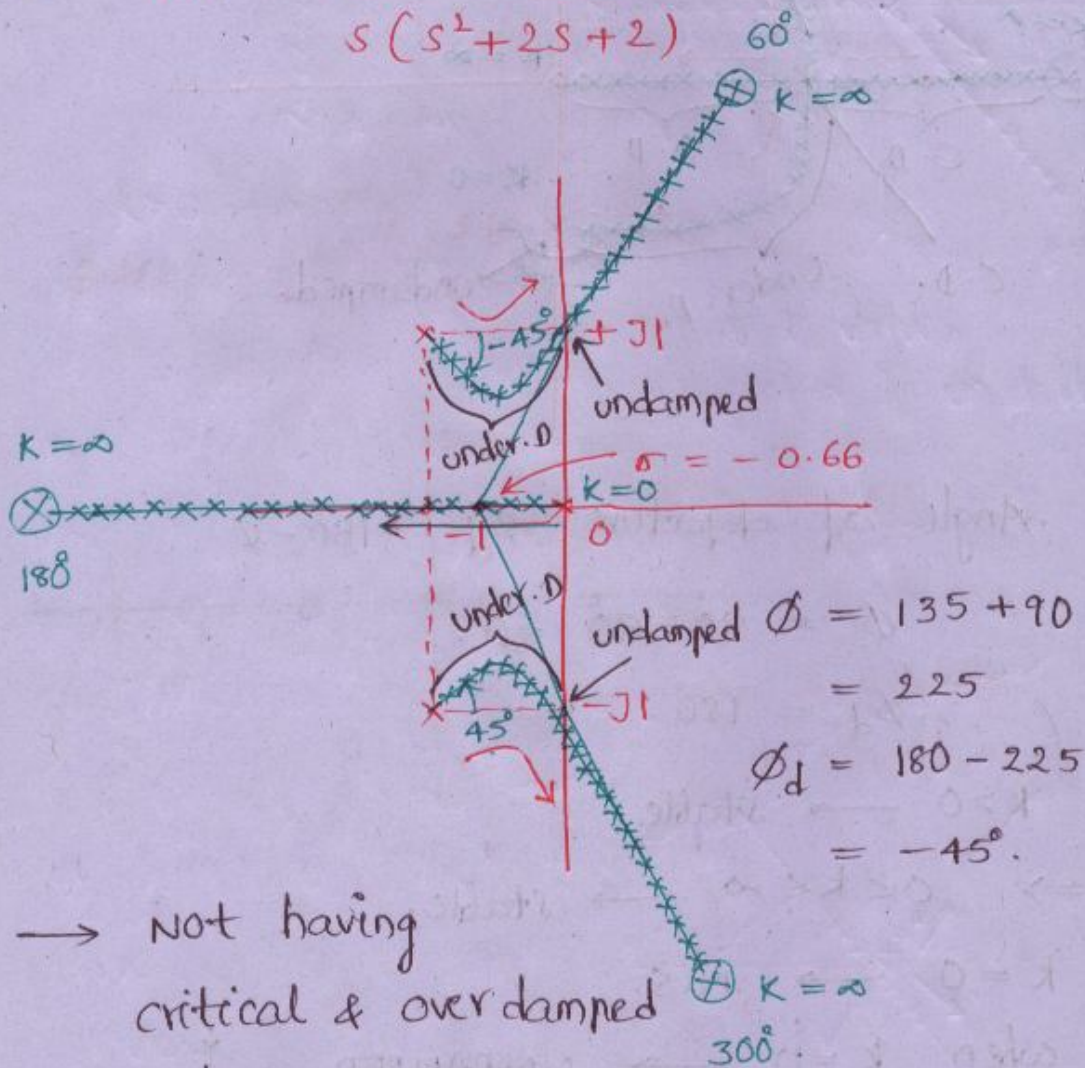 s(s²+2s+2)
60°
K=∞
-45°
+J1
undamped
under.D
K=∞
σ = -0.66
K=0
-1
0
180°
under.D
undamped
Ø = 135+90
= 225
45°
-J1
Ød = 180-225
= -45°.
→ Not having
critical & overdamped
K=∞
300°